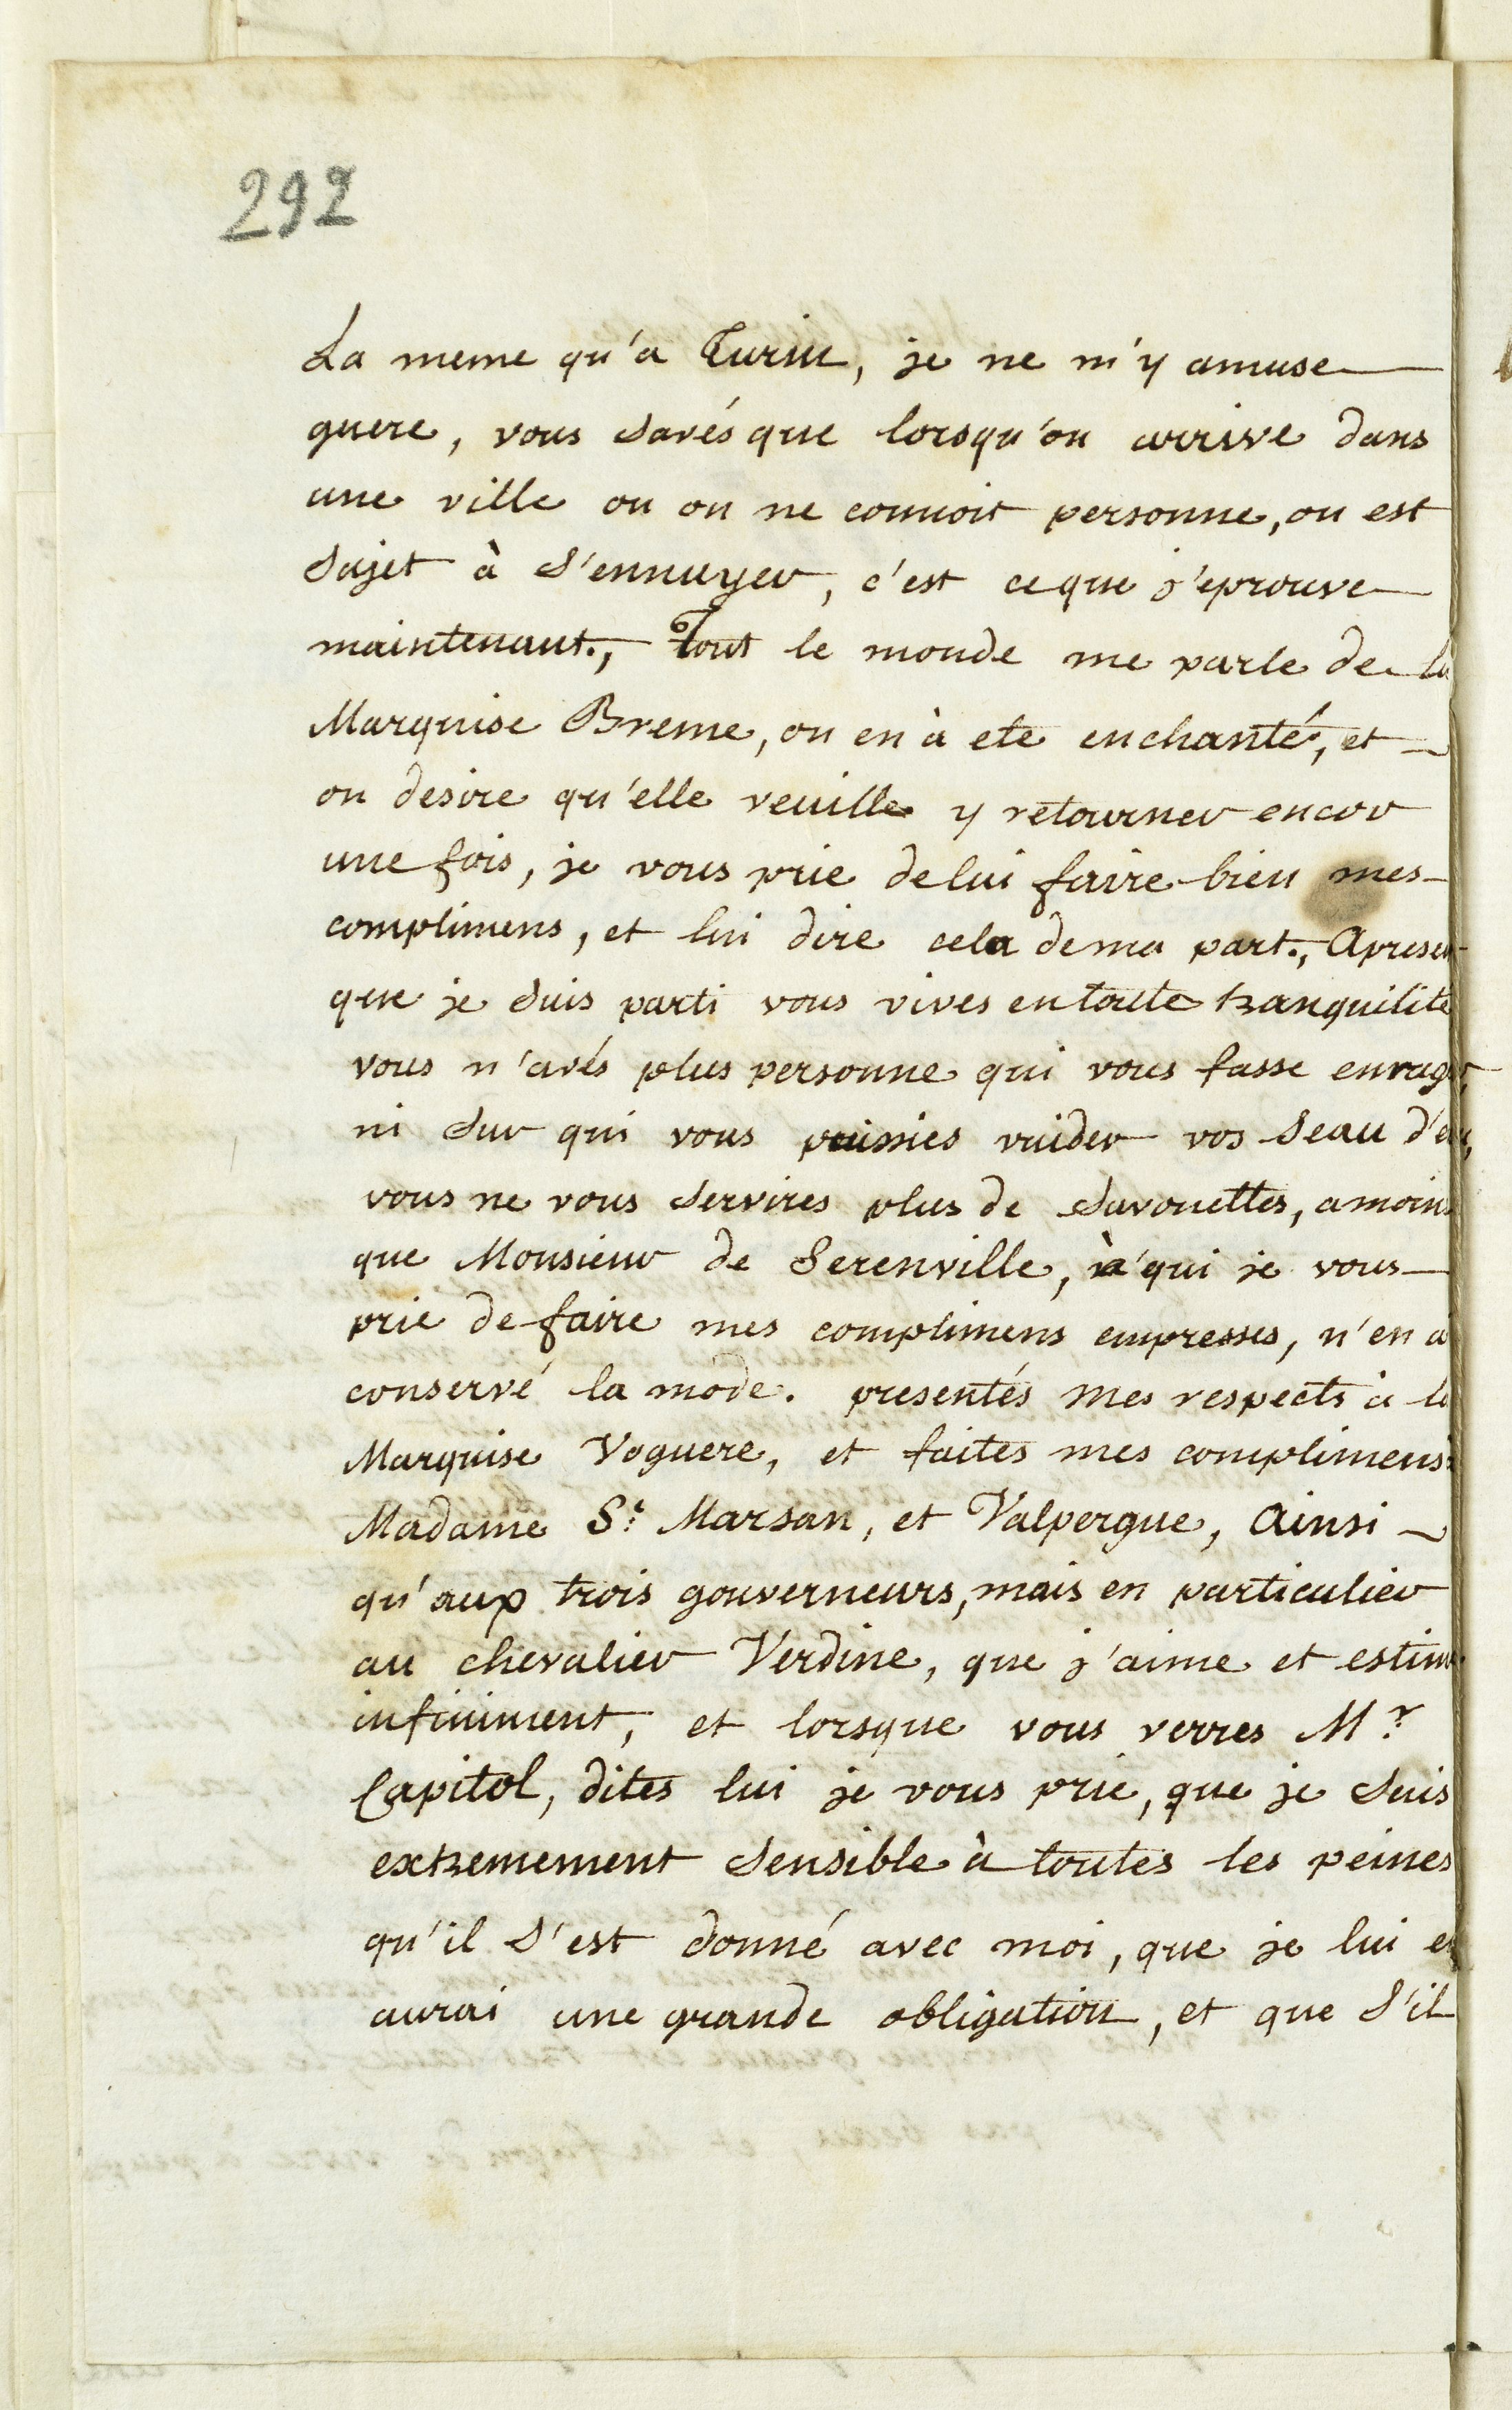 292
La meme qu'a Turin, je ne m'y amuse
guere, vous savés que lorsqu'on arrive dans
une ville ou on ne connoit personne, on est
sujet à s'ennuyer, c'est ce que j'eprouve
maintenant., Tout le monde me parle de la
Marquise Breme, on en à ete enchanté, et
on desire qu'elle veuille y retourner encor
une fois, je vous prie de lui faire bien mes
complimens, et lui dire cela de ma part., Apresen
que je suis parti vous vives en toute tranquilité
vous n'avés plus personne qui vous fasse enrager,
ni sur qui vous puissies vuider vos seau d'eau,
vous ne vous servires plus de savonettes, a moins
que Monsieur de Serenville, à qui je vous
prie de faire mes complimens empresses, n'en a
conservé la mode. presentés mes respects à la
Marquise Voguere, et faites mes complimens à
Madame St. Marsan, et Valpergue, Ainsi
qu'aux trois gouverneurs, mais en particulier
au chevalier Verdine, que j'aime et estime
infiniment, et lorsque vous verres Mr.
Capitol, dites lui je vous prie, que je suis
extremement sensible à toutes les peines
qu'il s'est donné avec moi, que je lui en
aurai une grande obligation, et que s'il